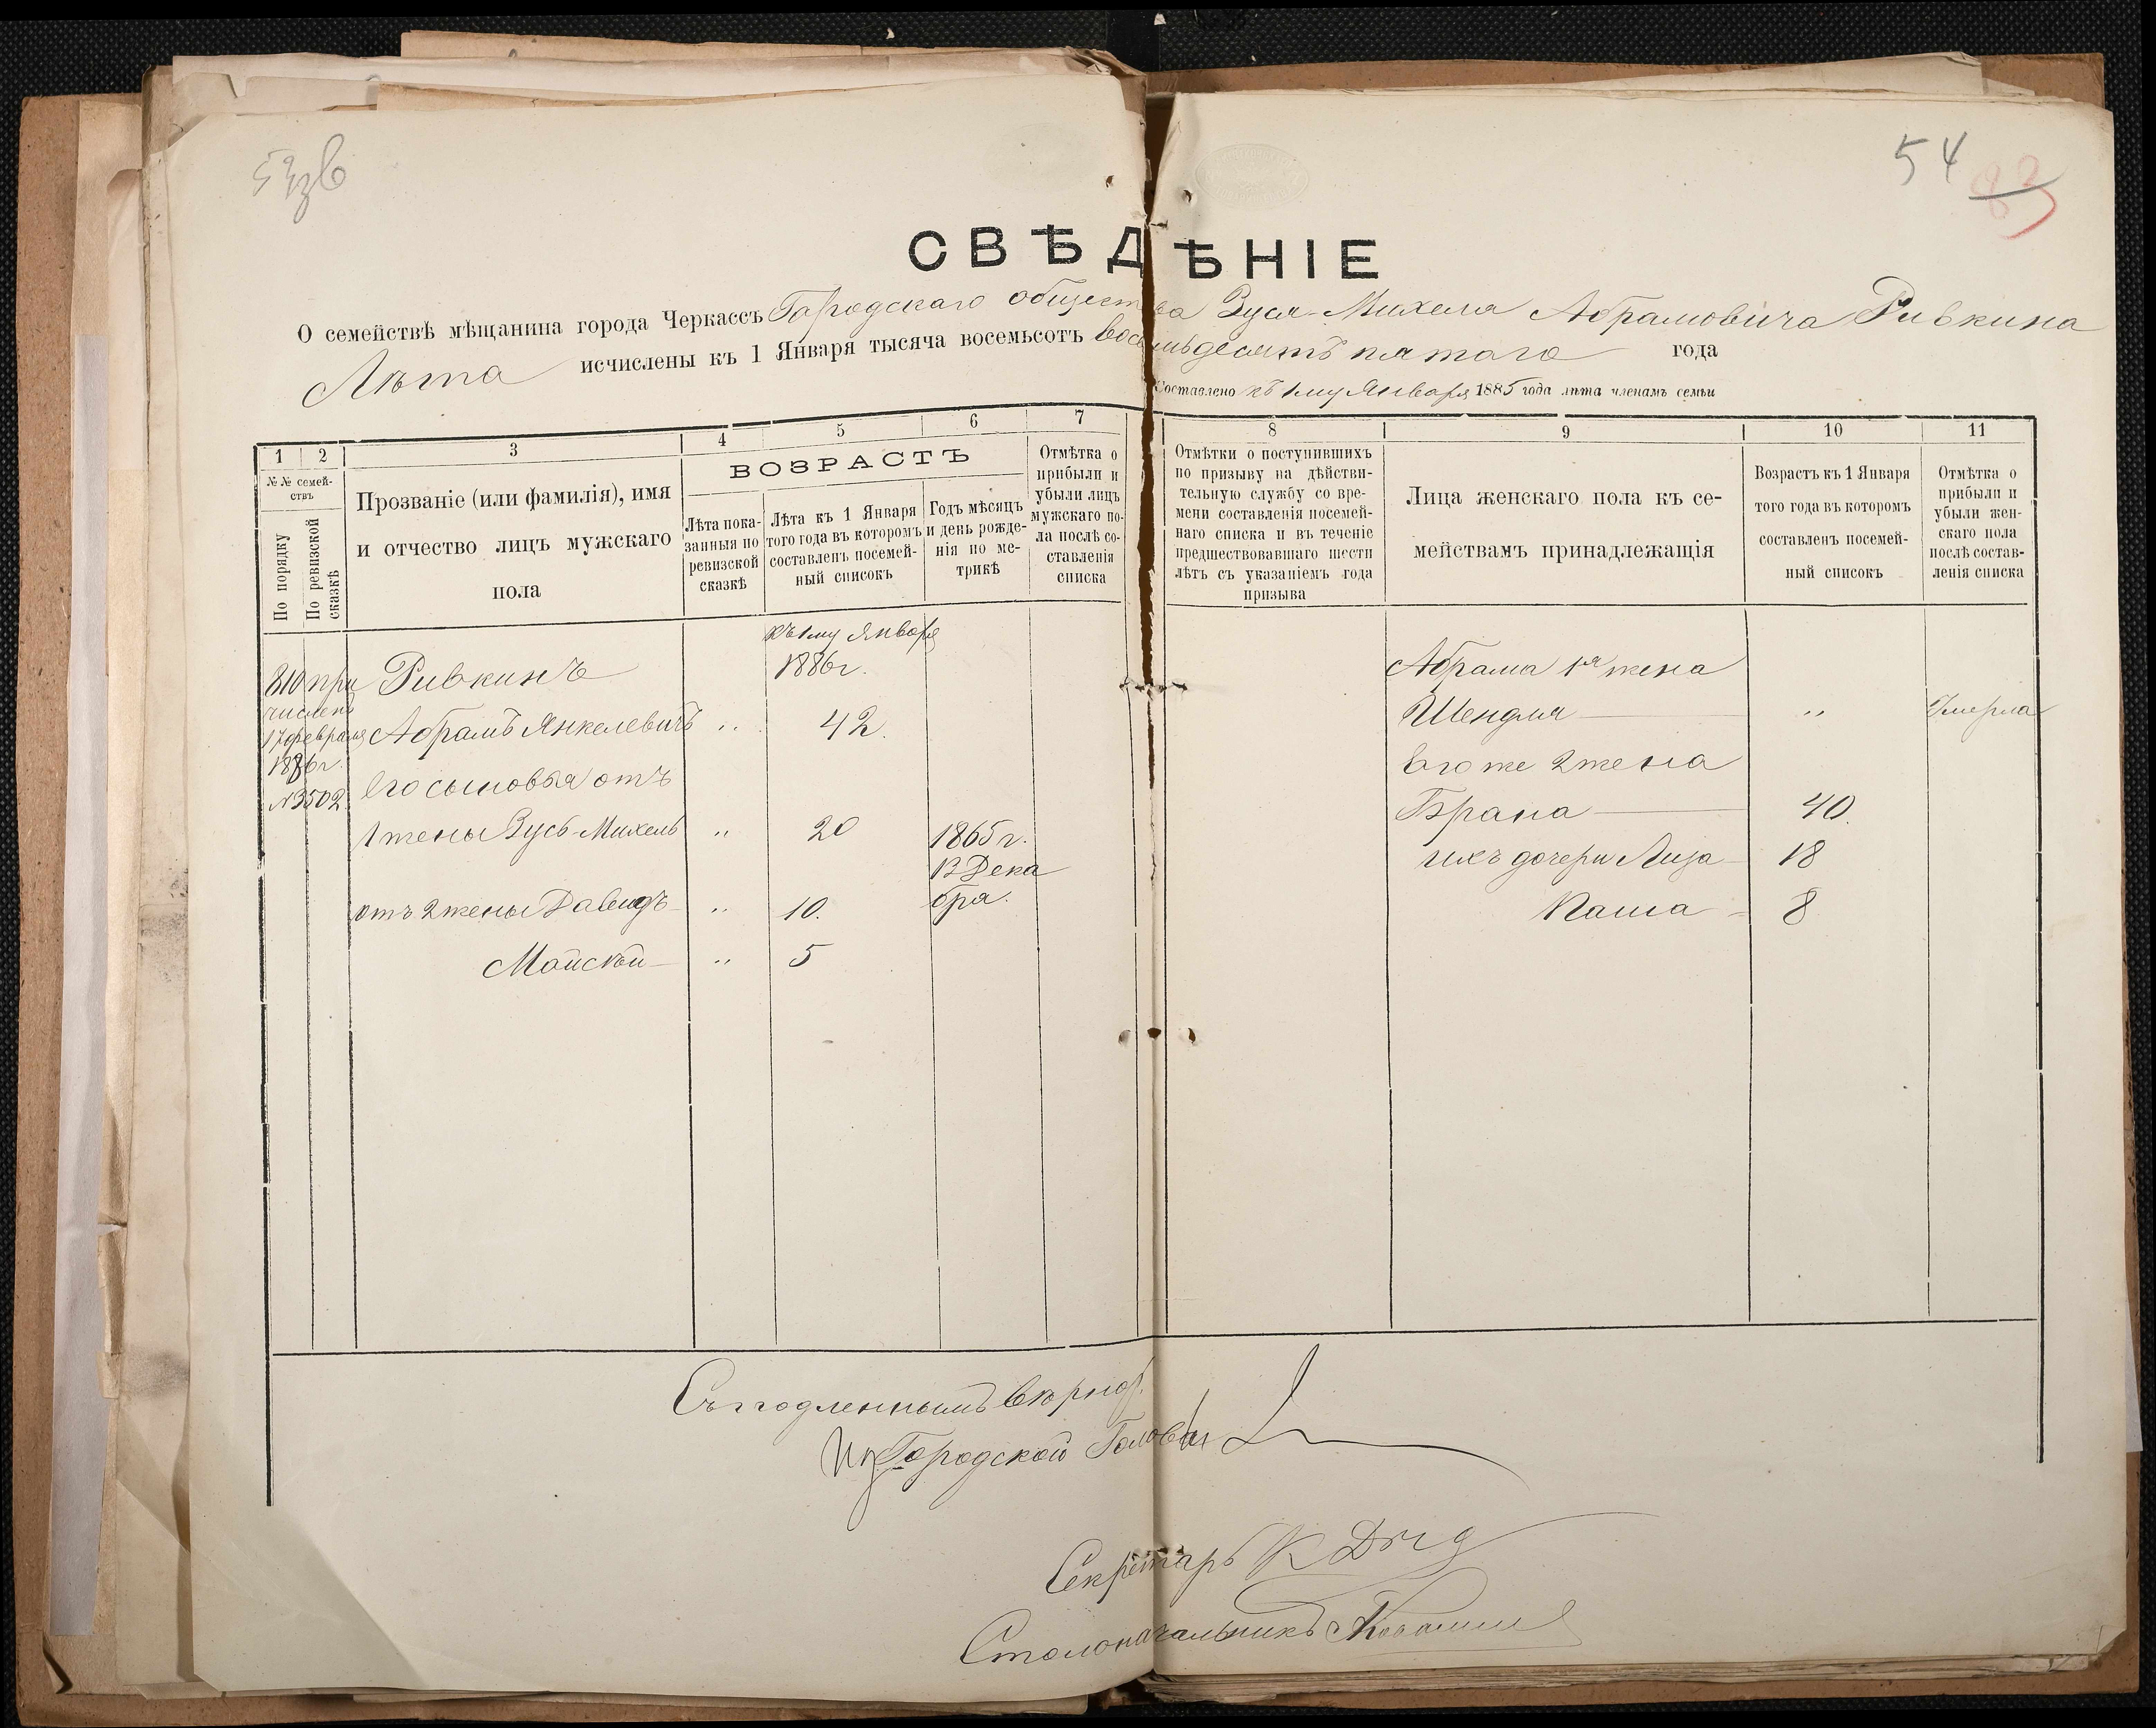 54
83
СВѢДѢНІЕ
О семействѣ мѣщанина города Черкассъ Городскаго общества Зуся-Михеля Абрамовича Ривкина
Лѣта исчислены къ 1 Января тысяча восемьсотъ восемьдесятъ пятаго года
Составлено къ 1му Января 1885 года лѣта членамъ семьи
1 2 3 4 5 6 7 8 9 10 11
№№ семей-
ствъ
По порядку
По ревизской
сказкѣ
Прозваніе (или фамилія), имя
и отчество лицъ мужскаго
пола
ВОЗРАСТЪ
Лѣта пока-
занныя по
ревизской
сказкѣ
Лѣта къ 1 Января
того года въ которомъ
составленъ посемей-
ный списокъ
Годъ мѣсяцъ
и день рожде-
нія по ме-
трикѣ
Отмѣтка о
прибыли и
убыли лицъ
мужскаго по-
ла послѣ со-
ставленія
списка
Отмѣтки о поступившихъ
по призыву на дѣйстви-
тельную службу со вре-
мени составленія посемей-
наго списка и въ теченіе
предшествовавшаго шести
лѣтъ съ указаніемъ года
призыва
Лица женскаго пола къ се-
мействамъ принадлежащія
Возрастъ къ 1 Января
того года въ которомъ
составленъ посемей-
ный списокъ
Отмѣтка о
прибыли и
убыли жен-
скаго пола
послѣ состав-
ленія списка
810 при
численъ
17 февраля
1886 г.
№ 3502
къ 1му Января
1886 г.
Ривкинъ
Абрамъ Янкелевичъ „ 42.
Его сыновья отъ
1 жены Зусь-Михель „ 20 1865 г.
13 Дека
бря.
отъ 2 жены Давидъ „ 10.
Мойсей „ 5
Абрама 1я жена
Шендля „ Умерла
Его же 2 жена
Брана 40.
ихъ дочери Лиза 18
Паша 8
Съ подленнымъ вѣрно
Городской Голова
Секретарь
Столоначальникъ